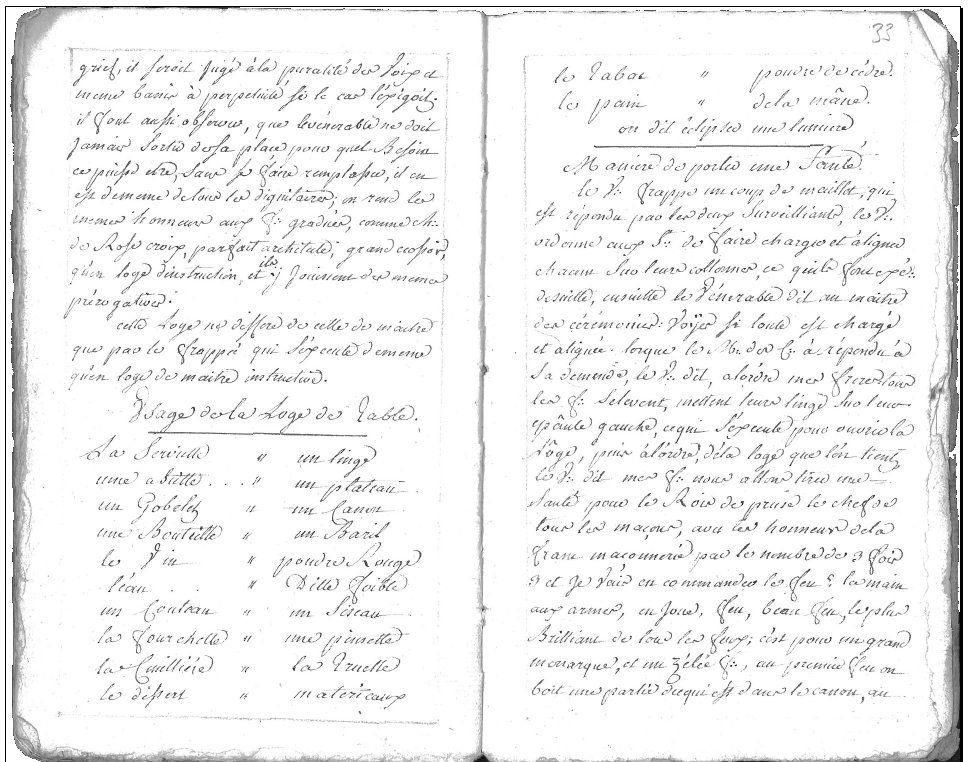 grief, il seroit jugé à la puralité des Voix et
meme banis à perpetuité si le cas l'éxigoit;
il faut aussi observer, que le vénérable ne doit
jamais sortir de sa place pour quel Besoin
ce puisse etre, sans se faire remplaser, il en
est de meme de tous les dignitaires; on rend les
memes honneurs aux f:. gradués, comme ch:.
de Rose croix, parfait architecte, grand ecossois,
qu'en loge d'instruction, et ils y Jouissent des memes
prérogatives.
cette Loge ne differe de celle de maitre
que par le frappée qui s'éxecute de meme
qu'en loge de maitre instructive.
Usage de la Loge de Table.
La Serviette " un linge
une asiette . . . " un plateau
un Gobelet " un Canon
une Bouteille " un Baril
le Vin " poudre Rouge
l'éau . . " Ditte foible
un Couteau " un Siseau
la fourchette " une pinsette
la Cuilliére " la Truelle
le dessert " materieaux
33
le Tabac " poudre de cédre.
le pain " de la mâne.
on dit éclipser une lumiere
Maniere de porter une Santé.
le V:. frappe un coup de maillet, qui
est répondu par les deux Surveilliants, le V:.
ordonne aux f:. de faire charger et aligner
chacun sur leurs collonnes, ce qu'ils font éxpé:.
desuitte, ensuitte le Vénerable dit au maitre
des cérémonies: Voÿés si toute est chargé
et alignée. lorque le M:. des C:. à répondu à
Sa demande, le V:. dit, a lordre mes freres tous
les f:. Selevent, mettent leurs linge sur leur
epaule gauche, ce qui s'éxecute pour ouvrir la
Lôge, puis à l'ordre, de la loge que l'on tient,
le V:. dit mes f:. nous allons tirer une
Santé pour le Rois de prusse le chef de
tous les maçons, avec les honneurs de la
franc maconnerie par le nombre de 3 fois
3 et Je Vais en commander le feu : la main
aux armes, en Joue, feu, beau feu, le plus
Brilliant de tous les feux; c'ést pour un grand
monarque, et un zélée f:., au premier feu on
boit une partie de ce qui est dans le canon, au